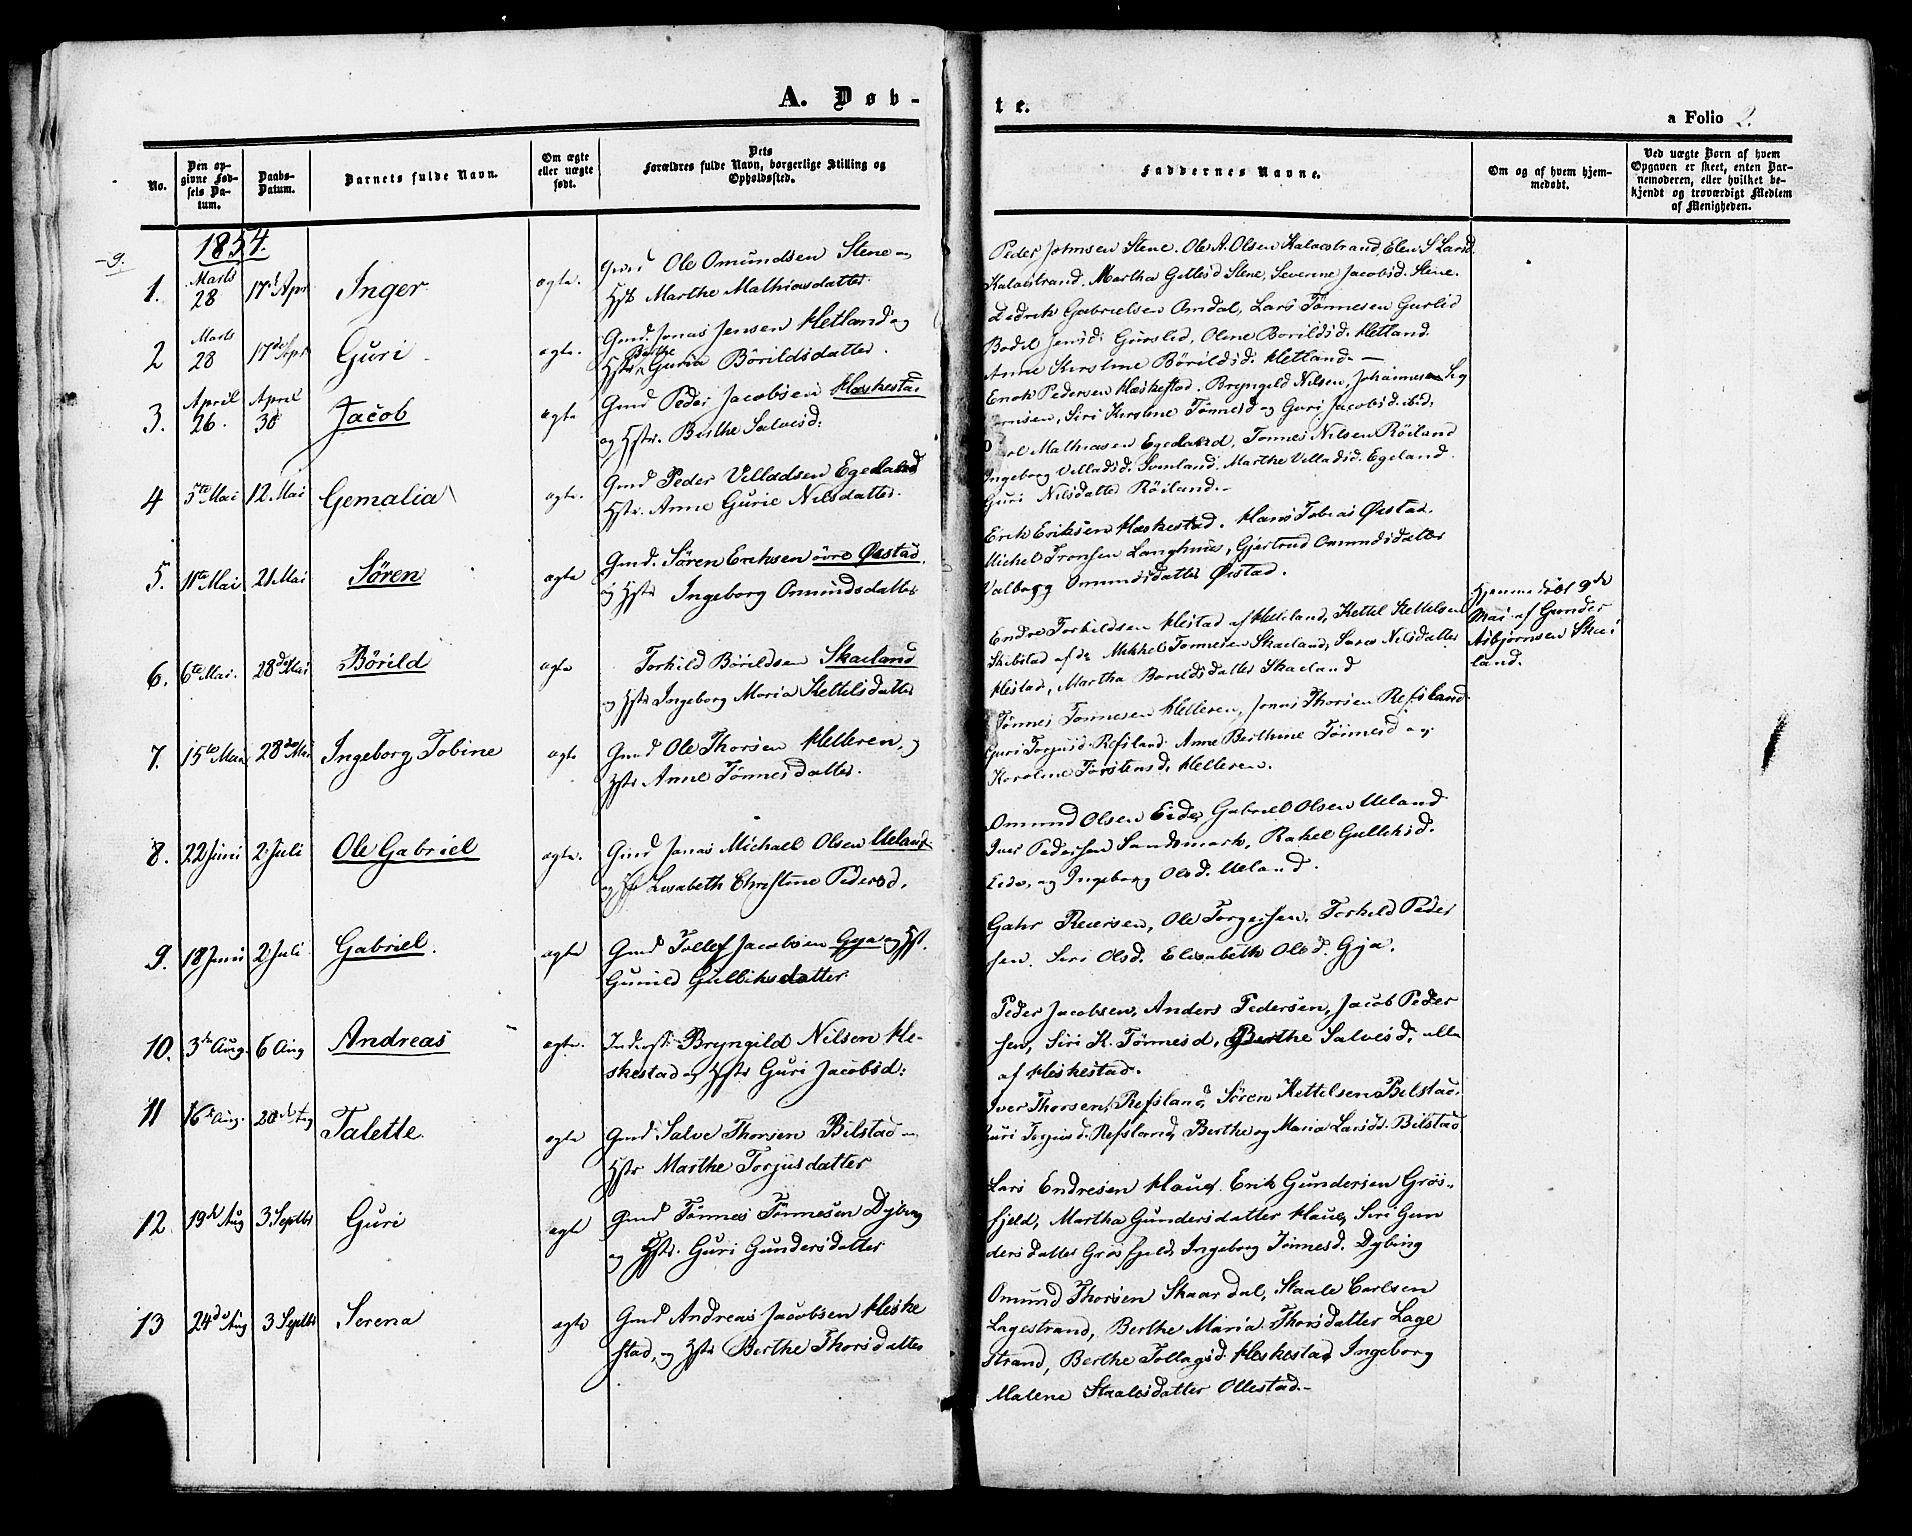 A. Døb-
te.
a Folio 2.
No.
Den op-
givne Fød-
sels Da-
tum.
Daabs-
Datum.
Barnets fulde Navn.
Om ægte
eller uægte
født.
Dets
Forældres fulde Navn, borgerlige Stilling og
Opholdssted.
Faddernes Navne.
Om og af hvem hjem-
medøbt.
Ved uægte Børn af hvem
Opgaven er skeet, enten Bar-
nemoderen, eller hvilket be-
kjendt og troværdigt Medlem
af Menigheden.
-9.
1854.
1. Marts 28 17d Apr Inger ægte.
Gmd Ole Omundsen Stene og
Hst Marthe Mathiasdatter
Peder Johnsen Stene. Ole A. Olsen Kalvestrand, Elen S Larsd.
Kalvestrand. Martha Gitlesd Stene, Severine Jacobsd. Stene.
2 Marts 28 17de Apr Guri ægte.
Gmd. Jonas Jensen Hetland og
Hstr Berthe Guria Börildsdatter.
Didrik Gabrielsen Omdal, Lars Tønnesen Gurlid
Bodil Jensd: Gurslid, Olene Borildsd. Hetland
Anne Kirstine Börildsd. Hetland. —
3. April 26. April 30 Jacob ægte
Gmd Peder Jacobsen Heskestad
og Hstr. Berthe Salvesd:
Enok Pedersen Heskestad. Bryngild Nilsen, Johannes Sig
bjørnsen, Siri Kirstine Tønnesd og Guri Jacobsd. ibid,
4 5te Mai 12. Mai Gemalia ægte.
Gmd Peder Villadsen Egeland
Hstr. Anne Gurie Nilsdatter.
Mathiasen Egeland, Tønnes Nilsen Röiland
Ingeborg Velladsd. Ivenland, Marthe Villadsd. Egeland.
Guri Nilsdatter Röiland.-
5. 11te Mai 21 Mai Søren ægte
Gmd. Sören Eriksen övre Østad
og Hstr Ingeborg Omundsdatter
Erik Eriksen Heskestad. Hans Tobias Østad.
Michel Tronsen Langhuus, Gjertrud Omundsdatter
Valborg Omundsdatter Østad.
6. 6te Mai. 28de Mai Börild ægte
Torkild Börildsen Skaeland
og Hstr Ingeborg Maria Kettelsdatter
Endre Torkildsen Hestad af Helleland, Kettel Kettelsen
Skibstad af do Mikkel Tønnesen Skaeland, Sara Nilsdatter
Hestad, Martha Borildsdatter Skaeland
Hjemmedøbt 9de
Mai af Gunder
Asbjørnsen Skai
land.
7. 15te Mai 28de Mai Ingeborg Tobine ægte
Gmd Ole Thorsen Helleren, og
Hstr Anne Tønnesdatter.
Tönnes Tønnesen Helleren, Jonas Thorsen Refsland
Guri Torjusd. Refsland. Anne Berthine Tönnesd og
Karoline Torstensd. Helleren.
8. 22 Juni 2. Juli Ole Gabriel ægte.
Gmd Jonas Michael Olsen Ueland
og Hst Lisabeth Christine Pedersd.
Omund Olsen Eide, Gabriel Olsen Ueland
Iver Pedersen Sandsmark, Rakel Gulliksd.
Eide, og Ingeborg Olsd. Ueland.
9. 18 Juni 2 Juli Gabriel. ægte
Gmd Tollef Jacobsen Gya og Hst.
Gunild Gulliksdatter
Gahr Reiersen, Ole Torgersen, Torkild Peder
sen. Siri Olsd. Elisabeth Olsd. Gja.
10. 3de Aug. 6 Aug Andreas ægte.
Inderst. Bryngild Nilsen He-
skestad og Hstr Guri Jacobsd:
Peder Jacobsen, Anders Pedersen, Jacob Peder
sen, Siri K. Tønnesd, Berthe Salvesd, alle
af Heskestad.
11 16de Aug. 20de Aug Talette ægte
Gmd Salve Thorsen Bilstad og
Hstr Marthe Torjusdatter
Iver Thorsen Refsland, Sören Kettelsen Bilstad.
Guri Torjusd. Refsland, Berthe og Maria Larsdd. Bilstad
12. 19de Aug 3. Septbr Guri ægte
Gmd Tönnes Tönnesen Dybing
og Hstr. Guri Gundersdatter
Lars Endresen Haue. Erik Gundersen Grös-
fjeld, Martha Gundersdatter Haue, Siri Gun
dersdatter Grösfjeld, Ingeborg Tønnesd. Dybing
13 24de Aug 3 Septbr Serena ægte
Gmd Andreas Jacobsen Heske
stad, og Hstr Berthe Thorsdatter
Omund Thorsen Skaardal, Staale Carlsen
Lagestrand, Berthe Maria Thorsdatter Lage
strand, Berthe Tollagsd. Heskestad, Ingeborg
Malene Staalesdatter Ollestad.-